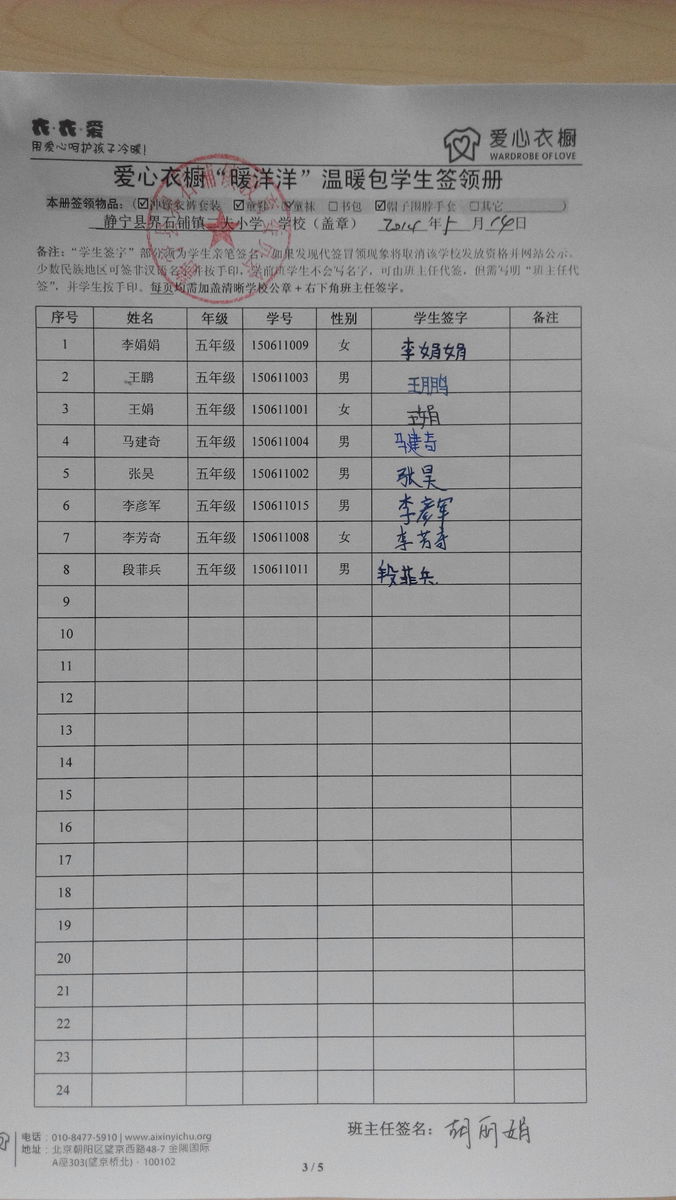 衣·衣·爱
用爱心呵护孩子冷暖!
爱心衣橱
WARDROBE OF LOVE
爱心衣橱“暖洋洋”温暖包学生签领册
本册签领物品：（☑冲锋衣裤套装 ☑童鞋 ☑童袜 ☐书包 ☑帽子围脖手套 ☐其它 ）
静宁县界石铺镇二夫小学 学校（盖章） 2014年5月14日
备注：“学生签字”部分须为学生亲笔签名，如果发现代签冒领现象将取消该学校发放资格并网站公示。
少数民族地区可签非汉语名字并按手印，学前班学生不会写名字，可由班主任代签，但需写明“班主任代
签”，并学生按手印。每页均需加盖清晰学校公章+右下角班主任签字。
序号 姓名 年级 学号 性别 学生签字 备注
1 李娟娟 五年级 150611009 女 李娟娟
2 王鹏 五年级 150611003 男 王鹏
3 王娟 五年级 150611001 女 王娟
4 马建奇 五年级 150611004 男 马建奇
5 张昊 五年级 150611002 男 张昊
6 李彦军 五年级 150611015 男 李彦军
7 李芳奇 五年级 150611008 女 李芳奇
8 段菲兵 五年级 150611011 男 段菲兵
9
10
11
12
13
14
15
16
17
18
19
20
21
22
23
24
班主任签名：胡丽娟
电话：010-8477-5910 | www.aixinyichu.org
地址：北京朝阳区望京西路48-7 金隅国际
A座303(望京桥北)·100102
3 / 5